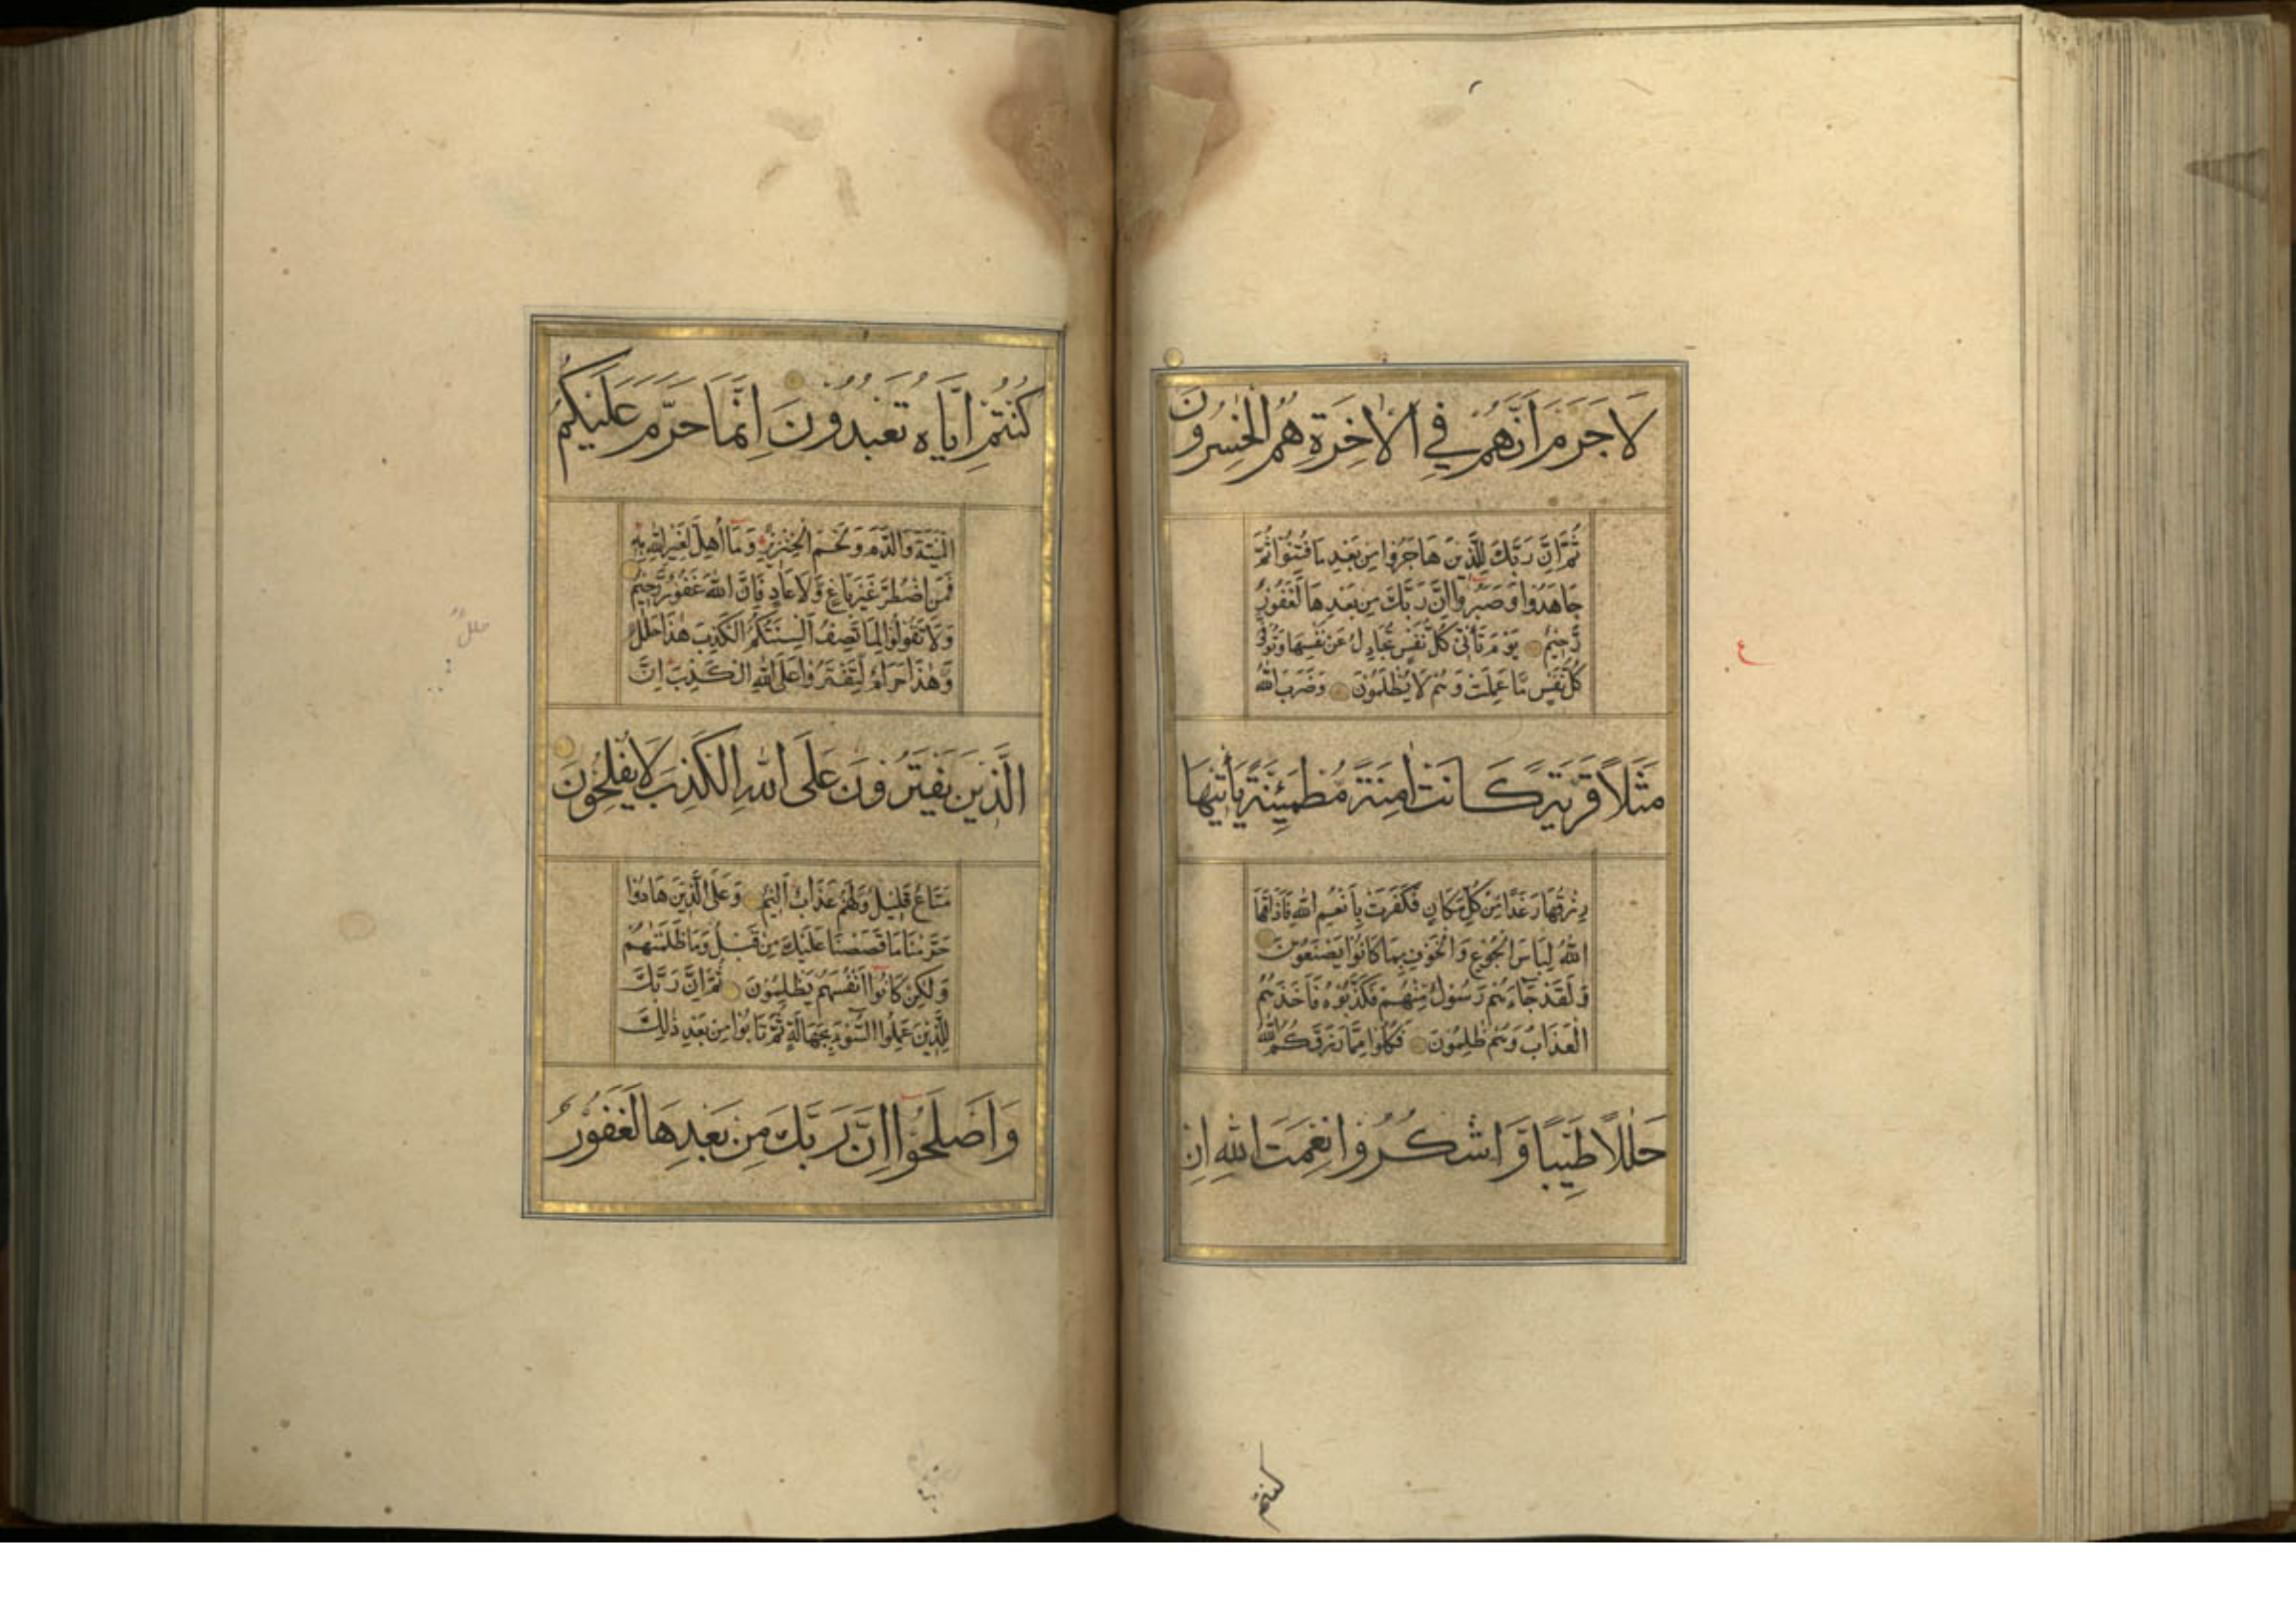 لَا جَرَمَ اَنَّهُمْ فِي الْاٰخِرَةِ هُمُ الْخٰسِرُونَ
ثُمَّ اِنَّ رَبَّكَ لِلَّذِينَ هَاجَرُوا مِنْ بَعْدِ مَا فُتِنُوْا ثُمَّ
جَاهَدُوا وَصَبَرُوْٓا اِنَّ رَبَّكَ مِنْ بَعْدِهَا لَغَفُوْرٌ
رَّحِيْمٌ يَوْمَ تَأْتِيْ كُلُّ نَفْسٍ تُجَادِلُ عَنْ نَفْسِهَا وَتُوَفّٰى
كُلُّ نَفْسٍ مَّا عَمِلَتْ وَهُمْ لَا يُظْلَمُوْنَ وَضَرَبَ اللهُ
مَثَلًا قَرْيَةً كَانَتْ اٰمِنَةً مُّطْمَئِنَّةً يَأْتِيْهَا
رِزْقُهَا رَغَدًا مِّنْ كُلِّ مَكَانٍ فَكَفَرَتْ بِاَنْعُمِ اللهِ فَاَذَاقَهَا
اللهُ لِبَاسَ الْجُوْعِ وَالْخَوْفِ بِمَا كَانُوْا يَصْنَعُوْنَ
وَلَقَدْ جَآءَهُمْ رَسُوْلٌ مِّنْهُمْ فَكَذَّبُوْهُ فَاَخَذَهُمُ
الْعَذَابُ وَهُمْ ظٰلِمُوْنَ فَكُلُوْا مِمَّا رَزَقَكُمُ اللهُ
حَلٰلًا طَيِّبًا وَّاشْكُرُوْا نِعْمَتَ اللهِ اِنْ
كنتم
ع
كُنْتُمْ اِيَّاهُ تَعْبُدُوْنَ اِنَّمَا حَرَّمَ عَلَيْكُمُ
الْمَيْتَةَ وَالدَّمَ وَلَحْمَ الْخِنْزِيْرِ وَمَآ اُهِلَّ لِغَيْرِ اللهِ بِهٖ
فَمَنِ اضْطُرَّ غَيْرَ بَاغٍ وَّلَا عَادٍ فَاِنَّ اللهَ غَفُوْرٌ رَّحِيْمٌ
وَلَا تَقُوْلُوْا لِمَا تَصِفُ اَلْسِنَتُكُمُ الْكَذِبَ هٰذَا حَلٰلٌ
وَّهٰذَا حَرَامٌ لِّتَفْتَرُوْا عَلَى اللهِ الْكَذِبَ اِنَّ
الَّذِيْنَ يَفْتَرُوْنَ عَلَى اللهِ الْكَذِبَ لَا يُفْلِحُوْنَ
مَتَاعٌ قَلِيْلٌ وَلَهُمْ عَذَابٌ اَلِيْمٌ وَعَلَى الَّذِيْنَ هَادُوْا
حَرَّمْنَا مَا قَصَصْنَا عَلَيْكَ مِنْ قَبْلُ وَمَا ظَلَمْنٰهُمْ
وَلٰكِنْ كَانُوْٓا اَنْفُسَهُمْ يَظْلِمُوْنَ ثُمَّ اِنَّ رَبَّكَ
لِلَّذِيْنَ عَمِلُوا السُّوْٓءَ بِجَهَالَةٍ ثُمَّ تَابُوْا مِنْ بَعْدِ ذٰلِكَ
وَاَصْلَحُوْٓا اِنَّ رَبَّكَ مِنْ بَعْدِهَا لَغَفُوْرٌ
حلل